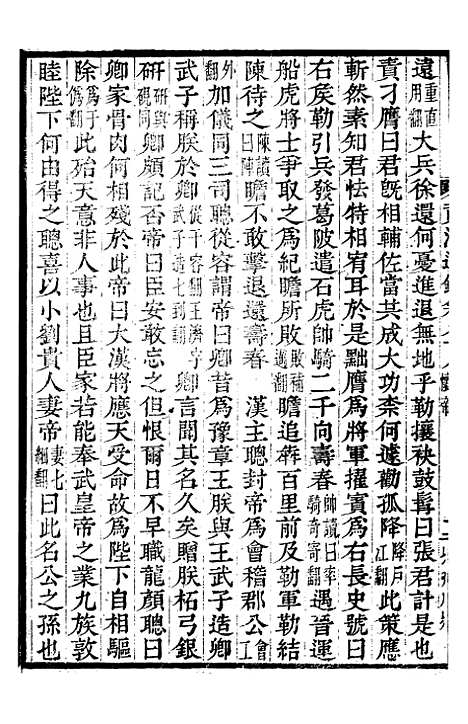 遠重直用翻大兵徐還何憂進退無地乎勒攘袂鼓髯曰張君計是也
責刁膺曰君旣相輔佐當其成大功柰何遽勸孤降降戶江翻此策應
斬然素知君怯特相宥耳於是黜膺爲將軍擢賓爲右長史號曰
右矦勒引兵發葛陂遣石虎帥騎二千向壽春帥讀曰率騎奇寄翻遇晉運
船虎將士爭取之爲紀瞻所敗敗補邁翻瞻追犇百里前及勒軍勒結
陳待之陳讀曰陣瞻不敢擊退還壽春　漢主聰封帝爲會稽郡公會工
外翻加儀同三司聰從容謂帝曰卿昔爲豫章王朕與王武子造卿
武子稱朕於卿從千容翻王濟字武子造七到翻卿言聞其名久矣贈朕柘弓銀
硏硏與硯同卿頗記否帝曰臣安敢忘之但恨爾日不早識龍顏聰曰
卿家骨肉何相殘於此帝曰大漢將應天受命故爲陛下自相驅
除爲于僞翻此殆天意非人事也且臣家若能奉武皇帝之業九族敦
睦陛下何由得之聰喜以小劉貴人妻帝妻七細翻曰此名公之孫也